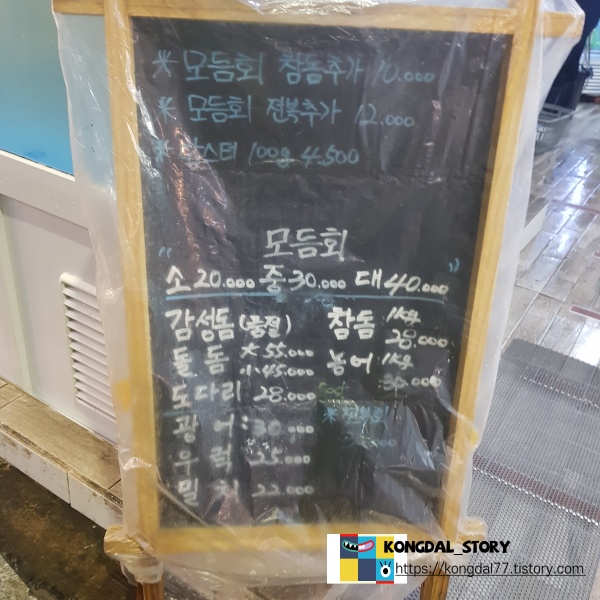 * 모듬회 참돔추가 10.000
* 모듬회 전복추가 12.000
* 랍스터 100g 4.500
" 모듬회 "
소 20.000 중 30.000 대 40.000
감성돔 (품절)
돌돔 大 55.000
小 45.000
도다리 28.000
광어 : 30.000
우럭 25.000
밀치 22.000
참돔 1kg
28.000
농어 1kg
30.000
KONGDAL_STORY
https://kongdal77.tistory.com